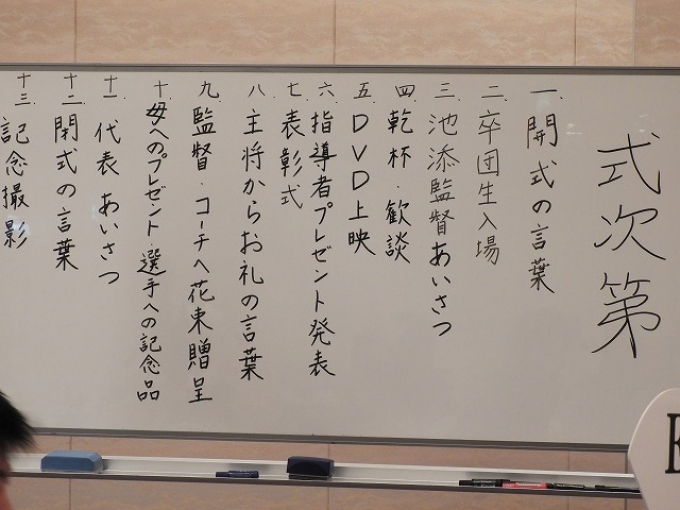 式次第
一、開式の言葉
二、卒団生入場
三、池添監督あいさつ
四、乾杯・歓談
五、DVD上映
六、指導者プレゼント発表
七、表彰式
八、主将からお礼の言葉
九、監督・コーチへ花束贈呈
十、母へのプレゼント・選手への記念品
十一、代表あいさつ
十二、閉式の言葉
十三、記念撮影